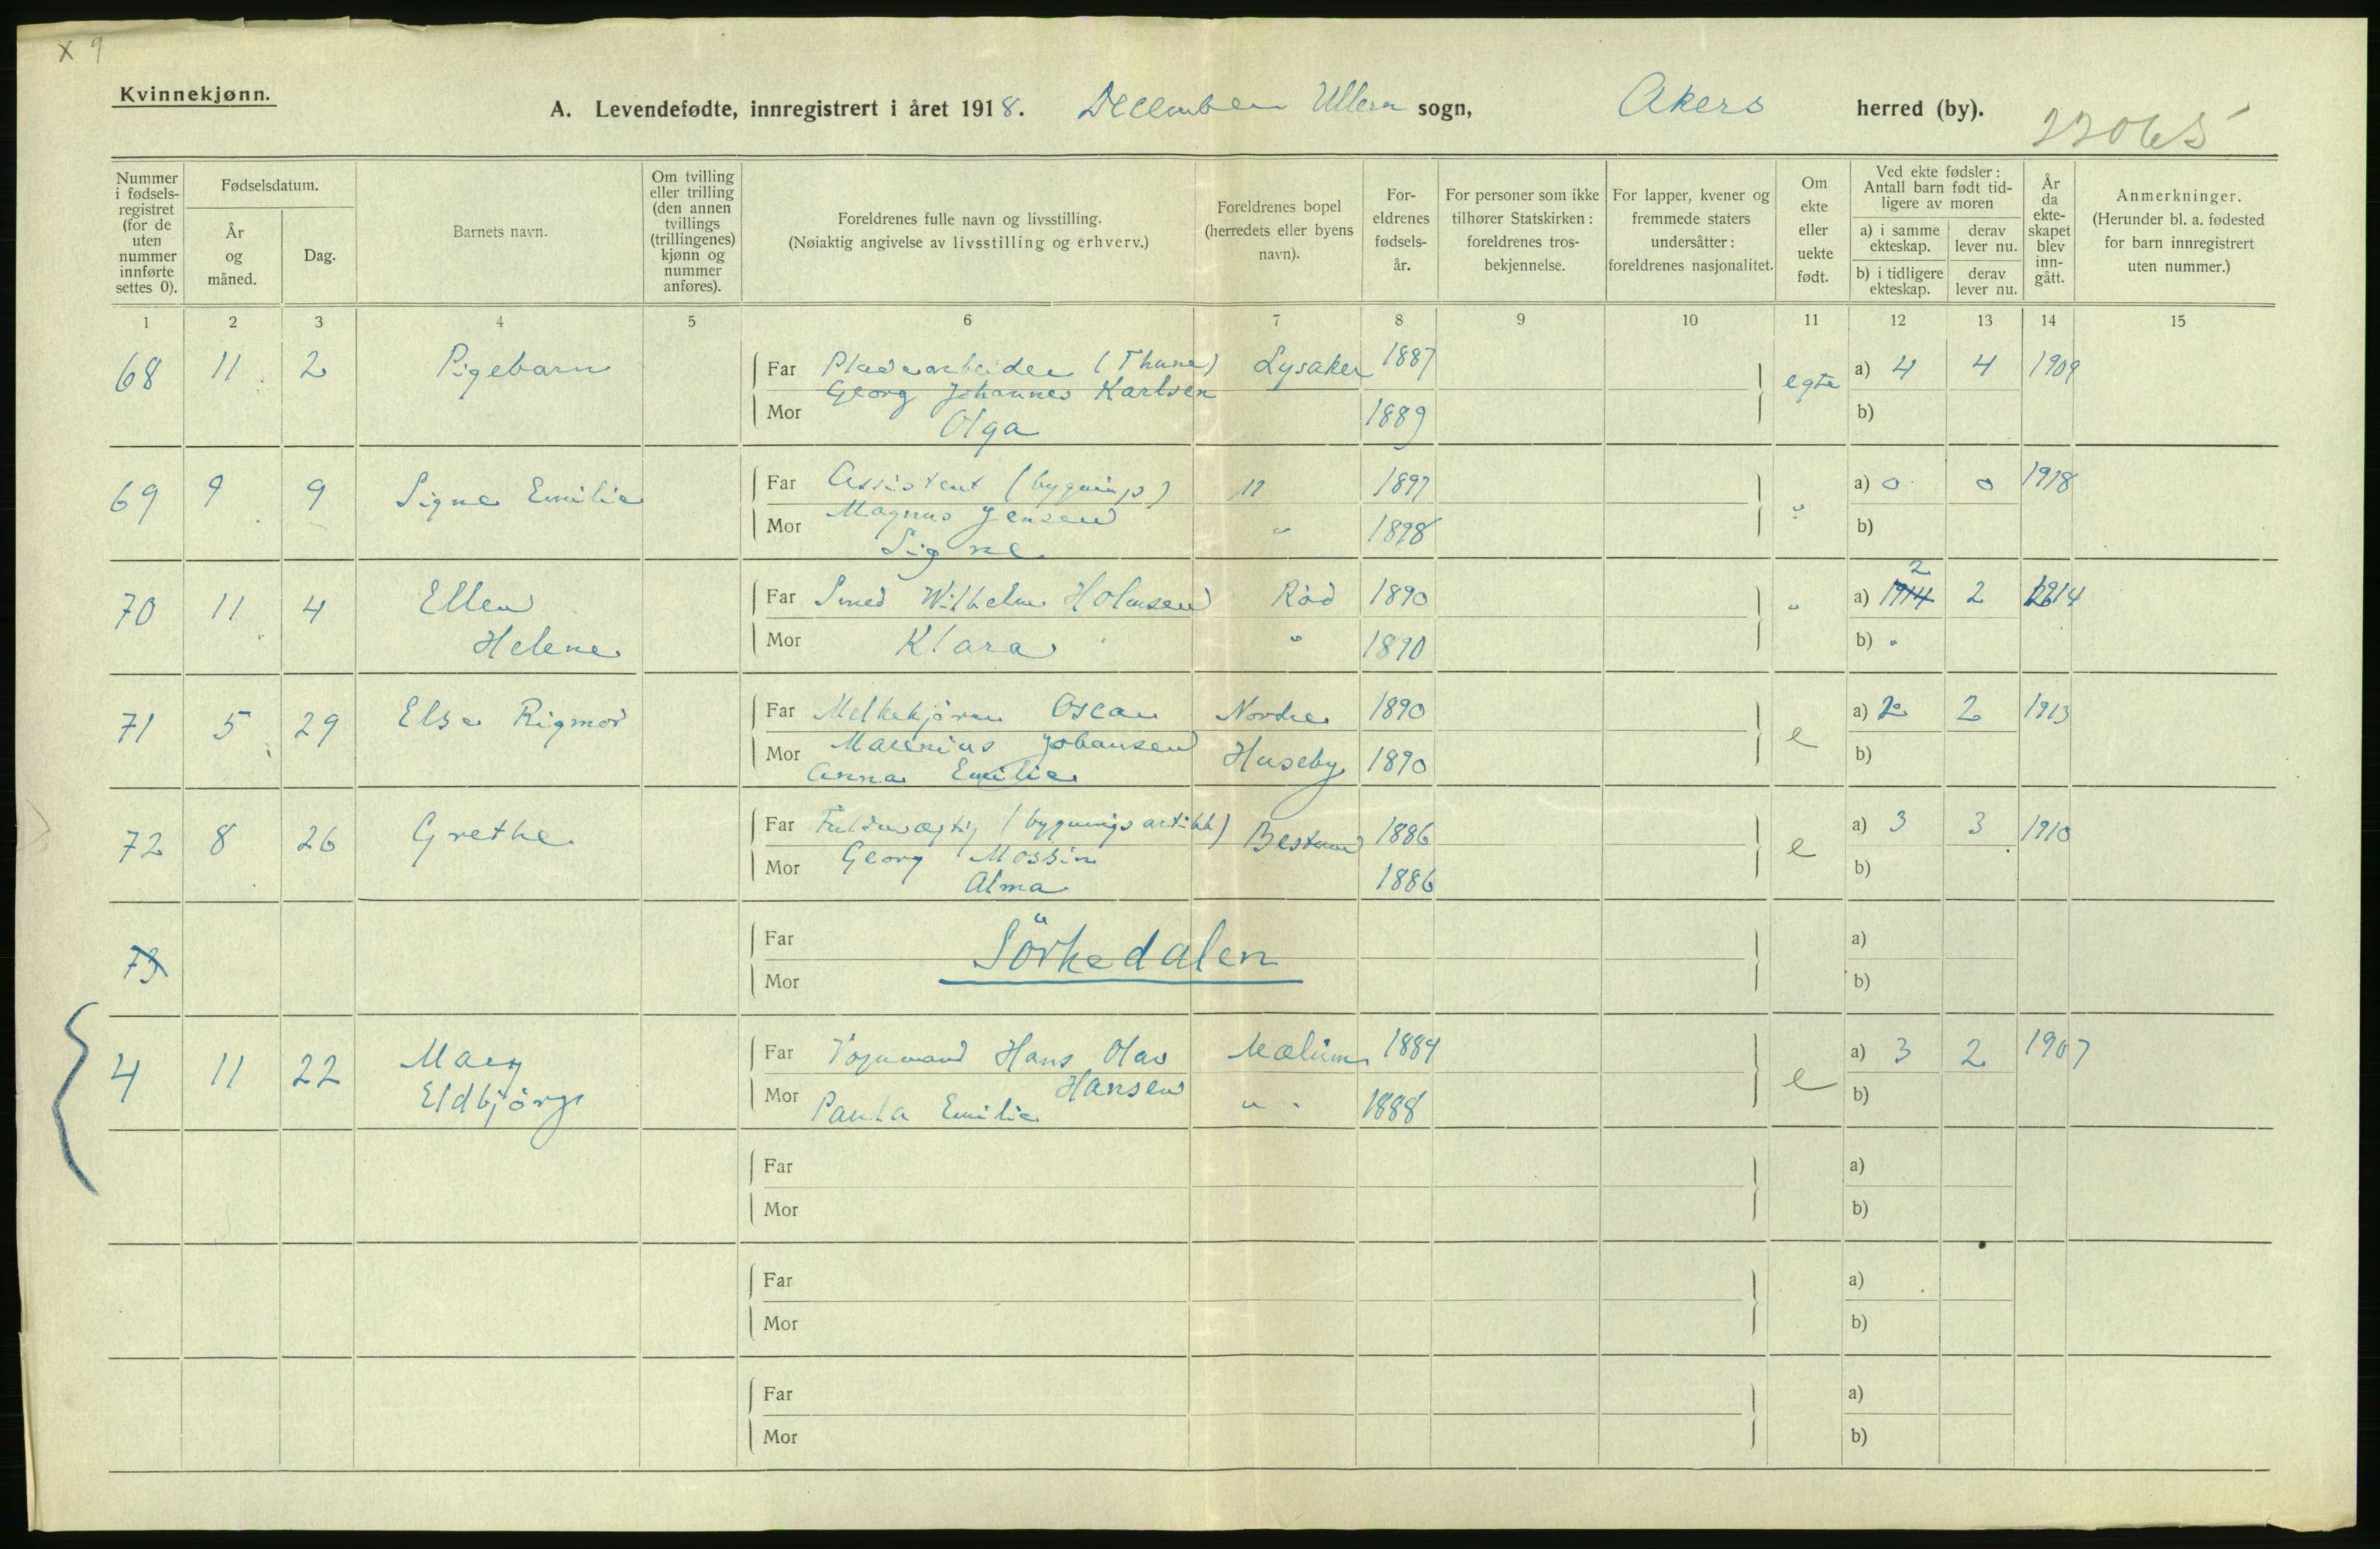 x 9
Kvinnekjønn.
A. Levendefødte, innregistrert i året 1918. December Ullern sogn, Akers herred (by).
22065
Nummer i fødsels-registret (for de uten nummer innførte settes 0).
Fødselsdatum.
År og måned.
Dag.
Barnets navn.
Om tvilling eller trilling (den annen tvillings (trillingenes) kjønn og nummer anføres).
Foreldrenes fulle navn og livsstilling.
(Nøiaktig angivelse av livsstilling og erhverv.)
Foreldrenes bopel (herredets eller byens navn).
For-eldrenes fødsels-år.
For personer som ikke tilhører Statskirken: foreldrenes tros-bekjennelse.
For lapper, kvener og fremmede staters undersåtter: foreldrenes nasjonalitet.
Om ekte eller uekte født.
Ved ekte fødsler: Antall barn født tid-ligere av moren
a) i samme ekteskap.
derav lever nu.
b) i tidligere ekteskap.
derav lever nu.
År da ekte-skapet blev inn-gått.
Anmerkninger.
(Herunder bl. a. fødested for barn innregistrert uten nummer.)
1 2 3 4 5 6 7 8 9 10 11 12 13 14 15
68 11 2 Pigebarn Far Pladearbeider (Thune) Lysaker 1887 egte a) 4 4 1909
Georg Johannes Karlsen
Mor Olga 1889 b)
69 9 9 Signe Emilie Far Assistent (bygnings) " 1897 " a) 0 0 1918
Magnus Jensen
Mor Signe " 1898 b)
70 11 4 Ellen Far Smed Wilhelm Holmsen Röd 1890 " a) 1914 2 2 1914
Helene Mor Klara " 1890 b) "
71 5 29 Else Rigmor Far Melkekjörer Oscar Nordre 1890 e a) 2 2 1913
Marenius Johansen
Mor Anna Emilie Huseby 1890 b)
72 8 26 Grethe Far Fuldmægtig (bygningsartikk) Bestum 1886 e a) 3 3 1910
Mor Georg Mossin b)
Alma 1886
73 Far Sörkedalen a)
Mor b)
4 11 22 Mary Far Vognmand Hans Olav Mælum 1884 e a) 3 2 1907
Eldbjörg Hansen
Mor Paula Emilie " " 1888 b)
Far a)
Mor b)
Far a)
Mor b)
Far a)
Mor b)